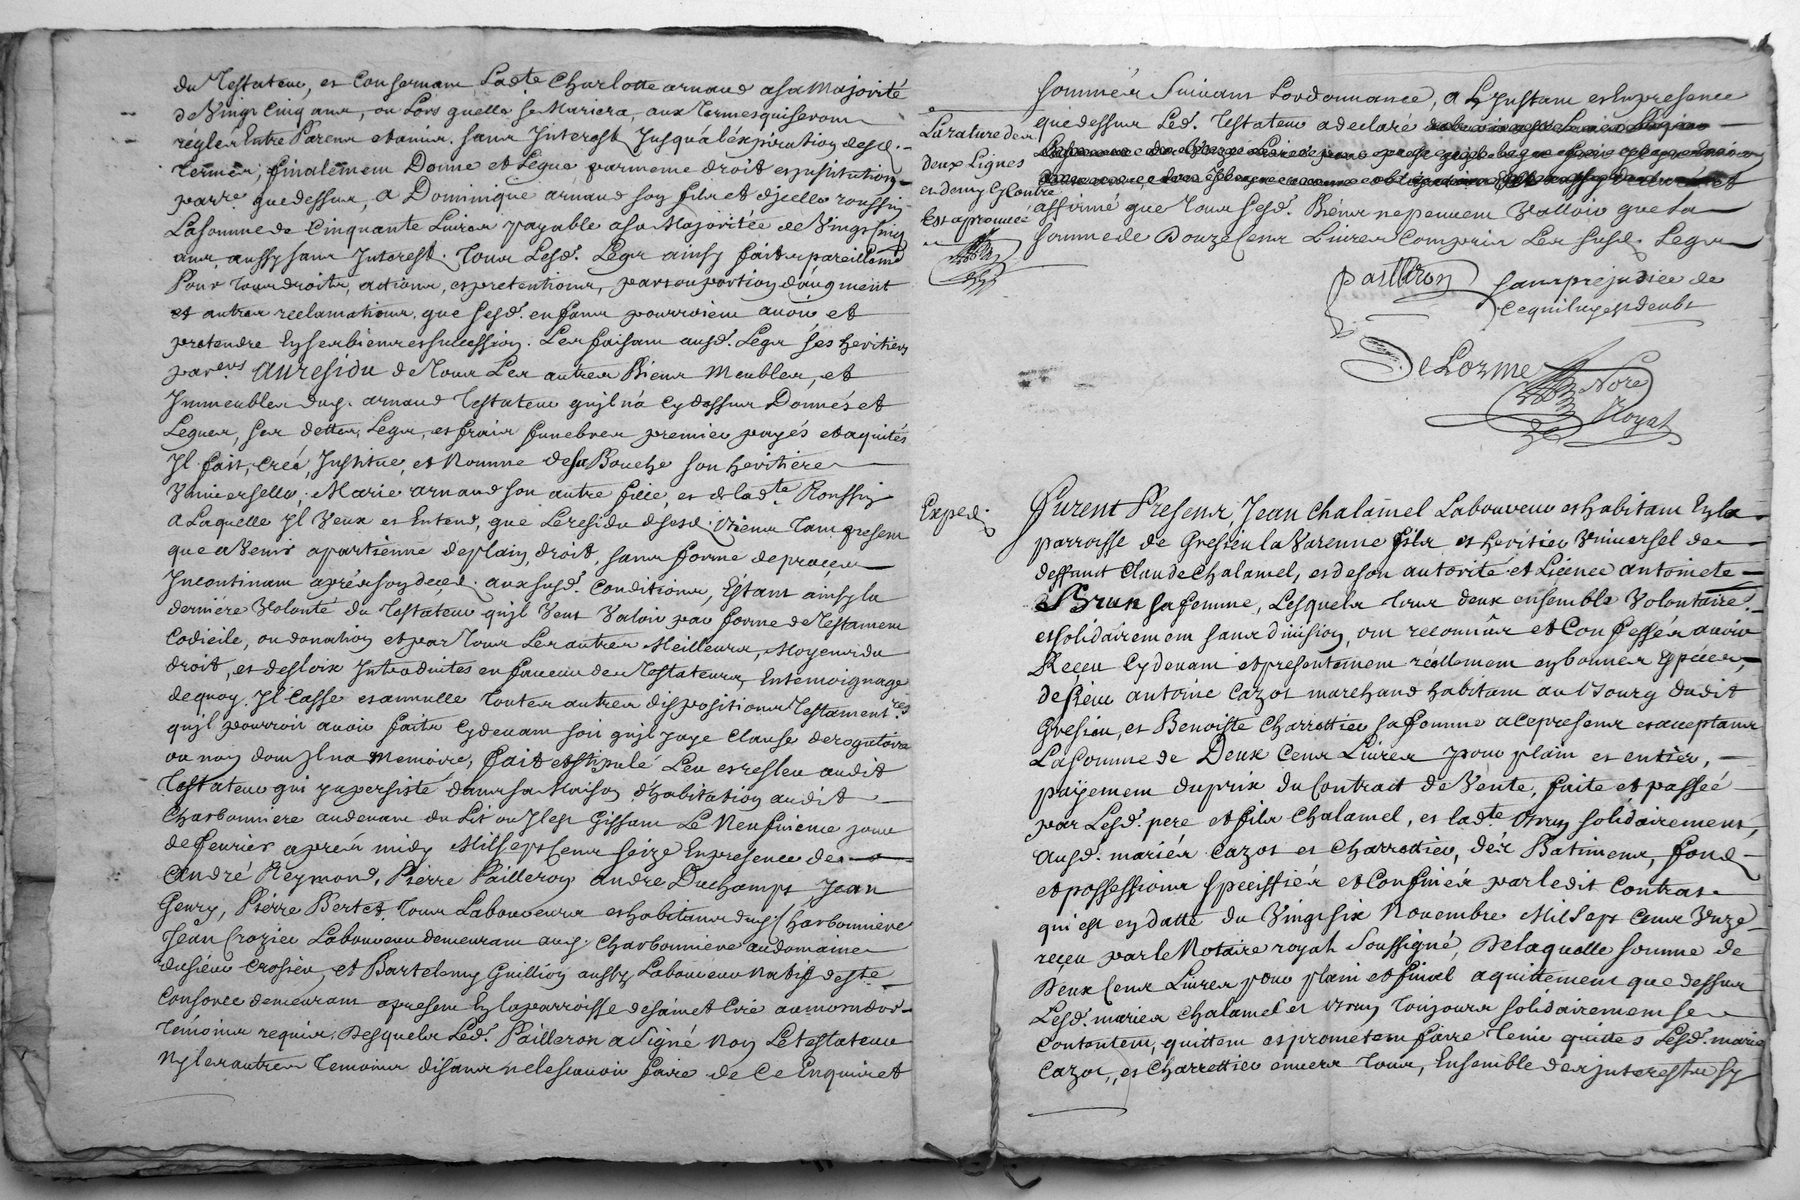 du Testateur, et Consernant Ladte Charlotte arnaud asa Majorité
de Vingt Cinq ans, ou Lors quelle se Mariera, aux Termes quiseront
réglés Entre Parens et amis. sans Interest Jusqua l'éxpiration desd.
Termes, finalement Donne et Legue, parmeme droit et institution
parre. que dessus, a Dominique arnaud son fils et djcelle roussin
La somme de Cinquante Livres payable asa Majoritée de Vingt Cinq
ans, aussy sans Interest. Tous Lesd. Legs ainsy faits pareillemt
Pour tous droits, actions, et pretentions, part ou portion d'augment
et autres reclamations que sesd. enfans pourroient avoir et
pretendre En ses biens et succession. Les faisant ausd. Legs ses heritiers
parers Au residu de Tous Les autres Biens Meubles, et
Immeubles dud. arnaud Testateur quil n'a Cy dessus Donnés et
Legues, ses dettes, Legs, et frais funebres premier payés et aquités
Jl fait, créé, Justitue, et Nomme de sa Bouche son heritiere
Universelle, Marie arnaud son autre fille, et de ladte Roussin
A Laquelle Jl Veux et Entend, que Le residu desesd. Biens tant present
que a Venir apartienne de plain droit, sans forme de procés
Incontinant aprés son deced. aux susd. Conditions, Estant ainsy la
derniére Volonté du Testateur quil Veut Valoir par forme de Testament
Codicile, ou donation et par Tous Les autres Meilleurs, Moyens du
droit, et des loix Introduites en faveur des Testateurs, En temoignage
de quoy. Jl Casse et annulle toutes autres dispositions Testamentres
quil pourroit avoir faites Cy devant soit quil y aye clause derogatoire
ou non dont Jl na Memoire, fait et stipulé Leu et releu audit
Testateur qui y a persisté dans sa Maison d'habitation audit
Charbonniere au devant du Lit ou Jl est Gissant Le Neufvieme jour
de fevrier aprés midy Mil sept Cens seize En presence de
André Reymond, Pierre Pailleron andre Duchamps Jean
Genry, Pierre Bertet. Tous Laboureurs et habitans dud. Charbonniere
Jean Crozier Laboureur demeurant aud. Charbonniere au domaine
du sieur Crosier, et Bartelemy Guillion aussy Laboureur Natif de Ste
Consorce demeurant apresent En la parroisse de saint Cire au mont dor
Temoins requis. Desquels Led. Pailleron a signé Non Le testateur
Ny les autres Temoins disans ne le scavoir faire de Ce Enquis et
sommés suivant Lordonnance, a L'Jnstant et En presence
que dessus Led. Testateur a declaré
affirmé que tous sesd. Biens ne peuvent Valloir que La
somme de Douze Cens Livres Compris Les susd. Legs
La rature des
deux Lignes
et demy Cy Contre
Est aprouvée
pailleron
sans prejudice de
ce quil luy est deubt
DeLorme
Nore
Royal
Exped.
Furent Presens, Jean Chalamel Laboureur et habitant En la
parroisse de Gresieu la Varenne fils et heritier Universel de
deffunt Claude Chalamel, et de son autorité et Licence antoinete
Brun sa femme, Lesquels Tous deux ensemble Volontaire.
et solidairement sans division, ont reconnûs et Confessés avoir
Reçeu Cy devant et presentement réellement en bonnes Especes,
de sieur antoine Cazot marchand habitant au Bourg dudit
Gresieu, et Benoiste Charrettier sa femme a Ce presens et acceptans
La somme de Deux Cens Livres pour plain et entier,
payement du prix du Contract de Vente, faite et passée
par Lesd. pere et fils Chalamel, et ladte Brun solidairement,
ausd. mariés Cazot et Charrettier, dés Batimens, fond
et possessions speciffiés et Confinés par ledit Contrat
qui est en datte du Vingt six Novembre Mil sept Cens Unze
reçeu par le Notaire royal soussigné, De laquelle somme de
Deux Cens Livres pour plain et final aquittement que dessus
Lesd. mariés Chalamel et Brun Toujours solidairement se
Contentent, quittent et prométent faire Tenir quittes Lesd. mariés
Cazot, et Charrettier envers Tous, Ensemble des jnterests sy